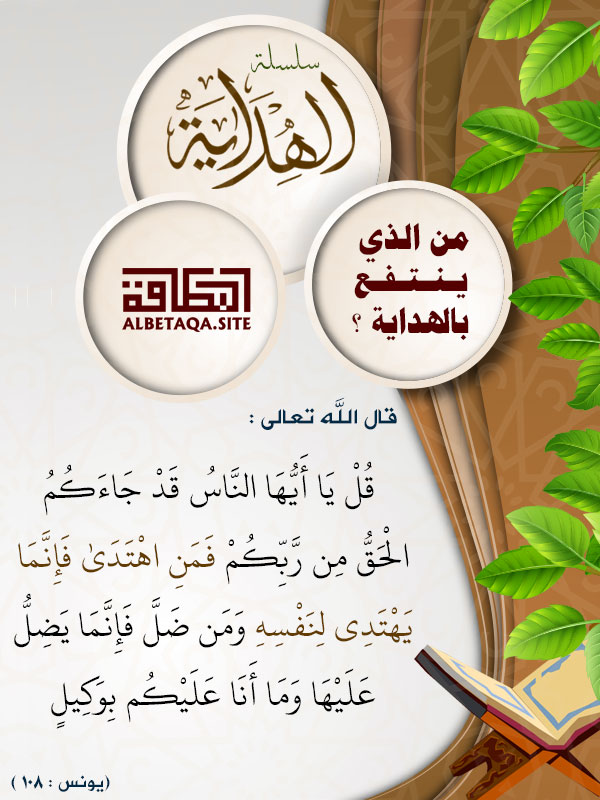 سلسلة
الهُدَايَةُ
من الذي
ينتفع
بالهداية ؟
البطاقة
ALBETAQA.SITE
قال اللَّه تعالى :
قُلْ يَا أَيُّهَا النَّاسُ قَدْ جَاءَكُمُ
الْحَقُّ مِن رَّبِّكُمْ فَمَنِ اهْتَدَىٰ فَإِنَّمَا
يَهْتَدِى لِنَفْسِهِ وَمَن ضَلَّ فَإِنَّمَا يَضِلُّ
عَلَيْهَا وَمَا أَنَا عَلَيْكُم بِوَكِيلٍ
(يونس : ١٠٨ )